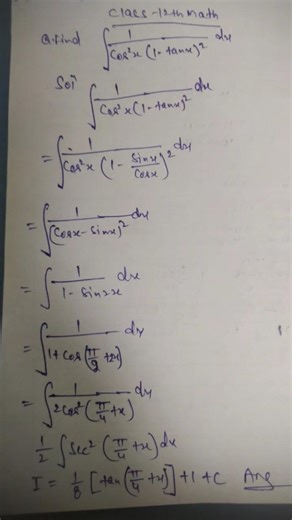 Class-12th Math
Q. find ∫ 1/(Cos²x (1-tanx)²) dx
Solⁿ ∫ 1/(Cos²x (1-tanx)²) dx
= ∫ 1/(Cos²x (1 - Sinx/Cosx)²) dx
= ∫ 1/(Cosx - Sinx)² dx
= ∫ 1/(1 - Sin2x) dx
= ∫ 1/(1 + Cos(π/2 + 2x)) dx
= ∫ 1/(2Cos²(π/4 + x)) dx
1/2 ∫ Sec²(π/4 + x) dx
I = 1/8 [tan(π/4 + x)] + 1 + C Ans